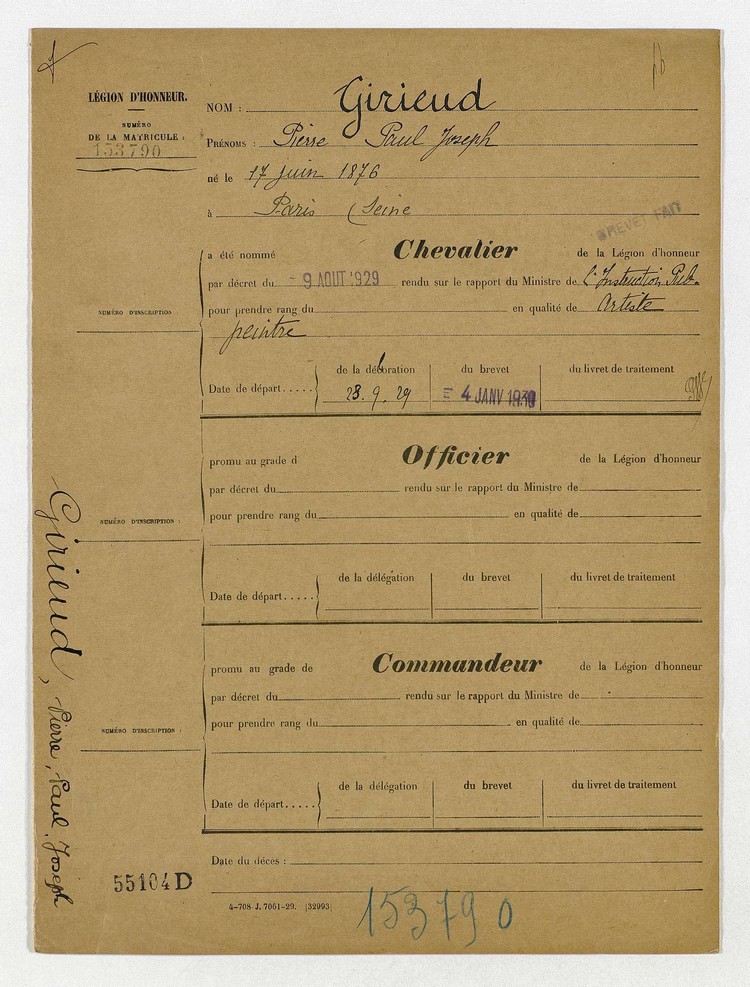 LÉGION D'HONNEUR.
NUMÉRO
DE LA MATRICULE :
153790
NOM : Girieud
PRÉNOMS : Pierre Paul Joseph
né le 17 juin 1876
à Paris (Seine
BREVET FAIT
a été nommé Chevalier de la Légion d'honneur
par décret du - 9 AOUT 1929 rendu sur le rapport du Ministre de l'Instruction Pub.
pour prendre rang du en qualité de Artiste
peintre
NUMÉRO D'INSCRIPTION
de la décoration du brevet du livret de traitement
Date de départ..... 28. 9. 29 4 JANV 1930
promu au grade d Officier de la Légion d'honneur
par décret du rendu sur le rapport du Ministre de
pour prendre rang du en qualité de
NUMÉRO D'INSCRIPTION :
de la délégation du brevet du livret de traitement
Date de départ.....
promu au grade de Commandeur de la Légion d'honneur
par décret du rendu sur le rapport du Ministre de
pour prendre rang du en qualité de
NUMÉRO D'INSCRIPTION :
de la délégation du brevet du livret de traitement
Date de départ.....
Date du décès :
55104 D
4-708-J. 7051-29. [32993]
153790
Girieud, Pierre, Paul, Joseph